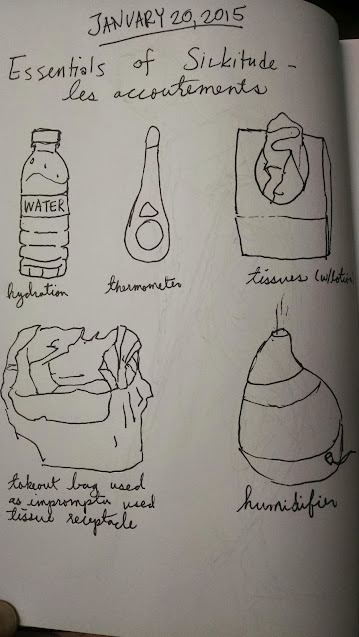 JANUARY 20, 2015
Essentials of Sickitude -
les accoutrements
WATER
hydration
thermometer
tissues (w/lotion
takeout bag used
as impromptu used
tissue receptacle
humidifier